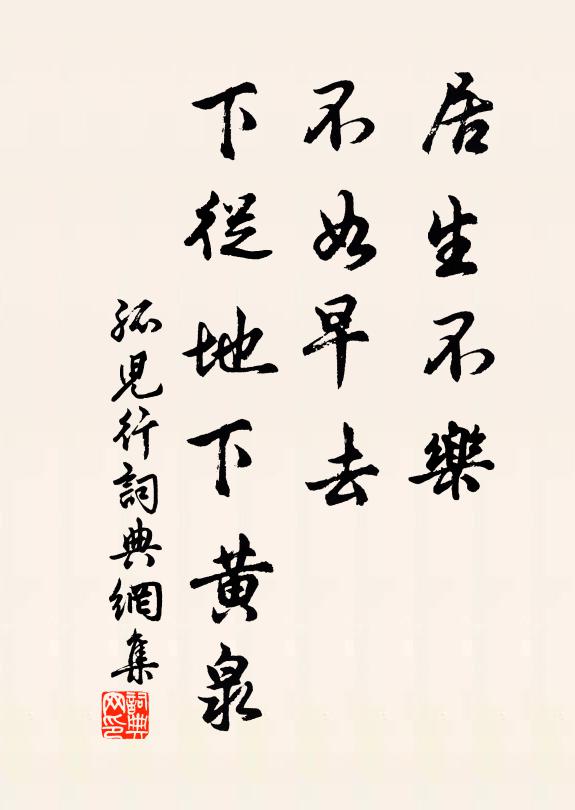 居生不樂
不如早去
下從地下黃泉
孤兒行詞典網集
詞典网印